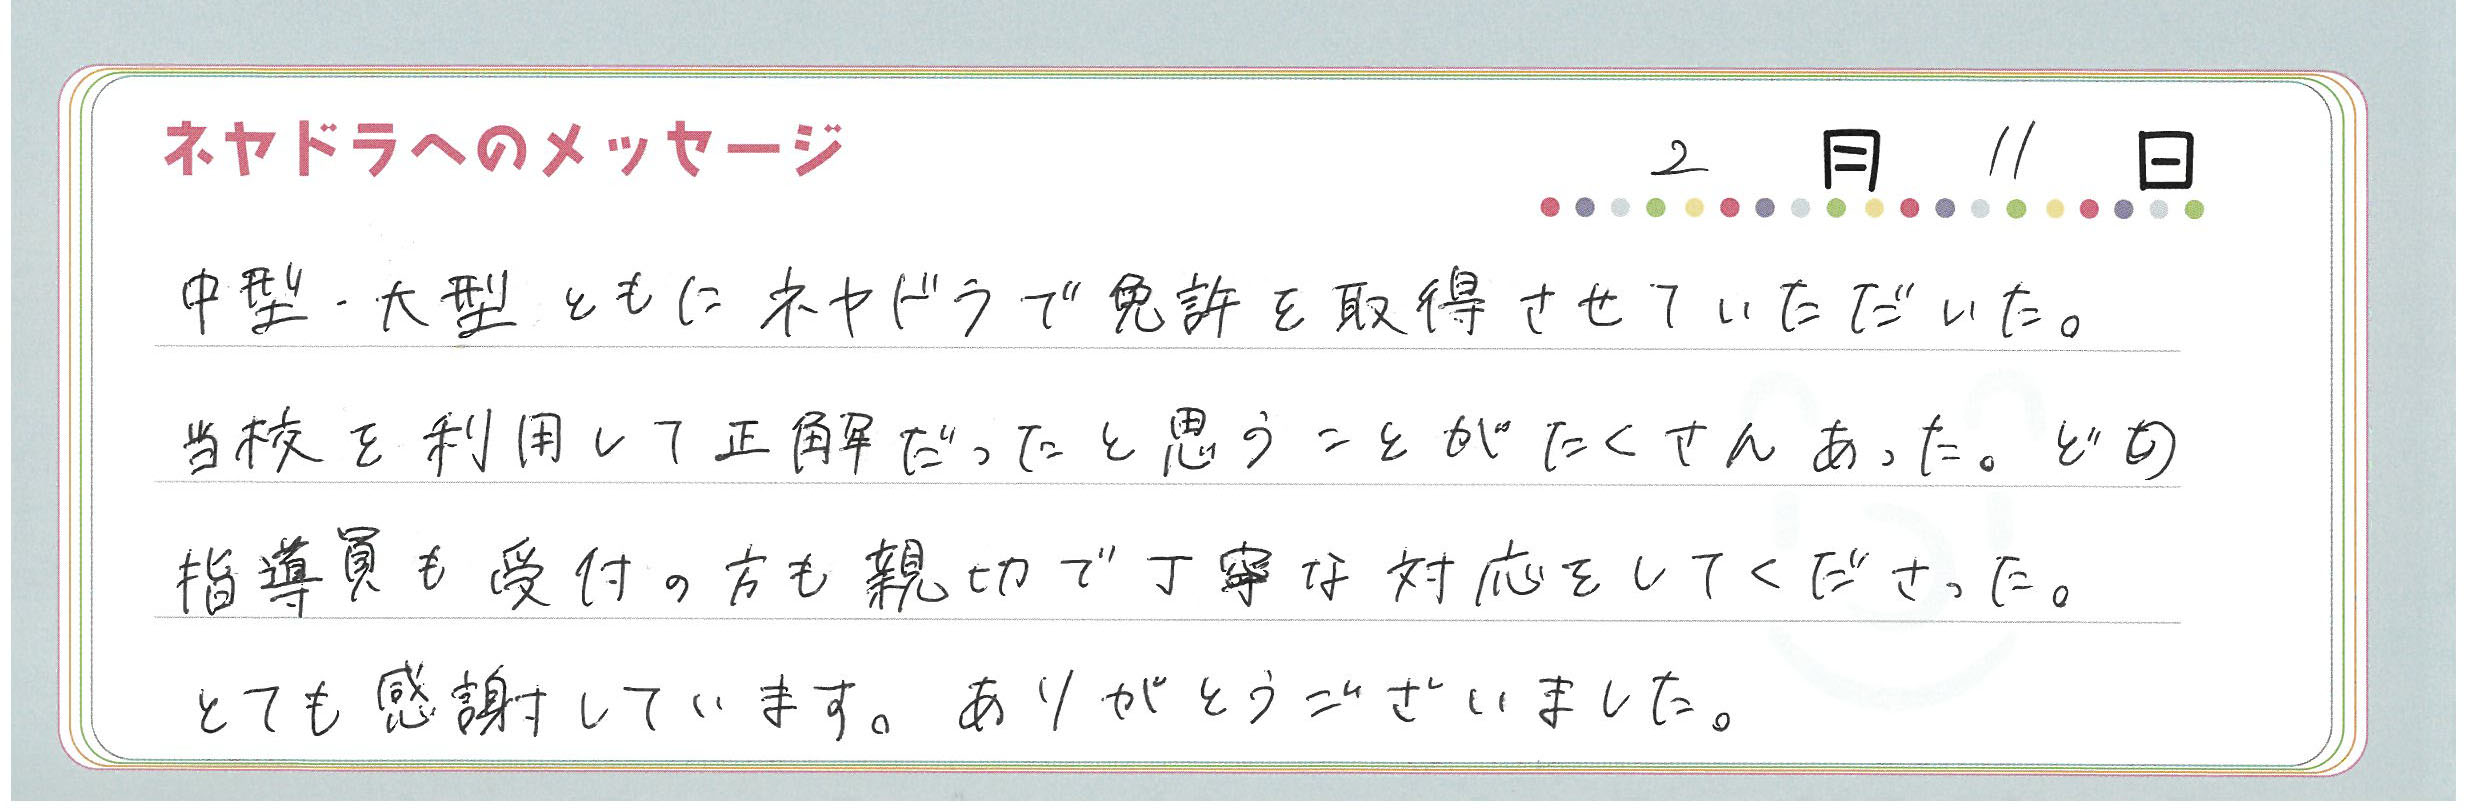 ネヤドラへのメッセージ
2月11日
中型・大型ともにネヤドラで免許を取得させていただいた。
当校を利用して正解だったと思うことがたくさんあった。どの
指導員も受付の方も親切で丁寧な対応をしてくださった。
とても感謝しています。ありがとうございました。